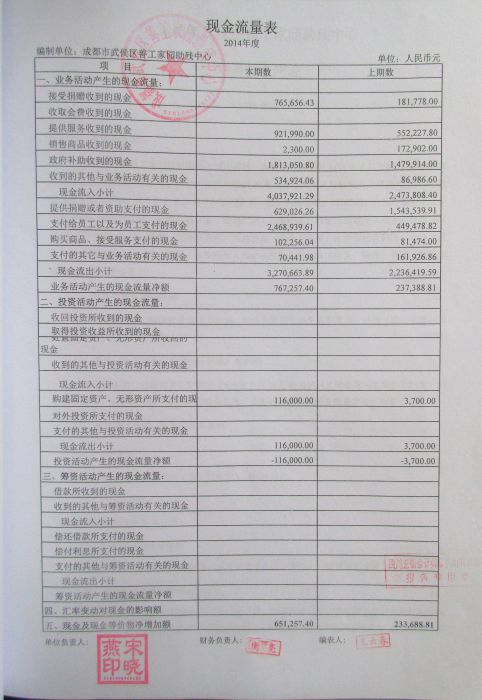 现金流量表
2014年度
编制单位：成都市武侯区善工家园助残中心 单位：人民币元
项 目 本期数 上期数
一、业务活动产生的现金流量：
接受捐赠收到的现金 765,656.43 181,778.00
收取会费收到的现金
提供服务收到的现金 921,990.00 552,227.80
销售商品收到的现金 2,300.00 172,902.00
政府补助收到的现金 1,813,050.80 1,479,914.00
收到的其他与业务活动有关的现金 534,924.06 86,986.60
现金流入小计 4,037,921.29 2,473,808.40
提供捐赠或者资助支付的现金 629,026.26 1,543,539.91
支付给员工以及为员工支付的现金 2,468,939.61 449,478.82
购买商品、接受服务支付的现金 102,256.04 81,474.00
支付的其它与业务活动有关的现金 70,441.98 161,926.86
现金流出小计 3,270,663.89 2,236,419.59
业务活动产生的现金流量净额 767,257.40 237,388.81
二、投资活动产生的现金流量：
收回投资所收到的现金
取得投资收益所收到的现金
处置固定资产、无形资产所收回的
现金
收到的其他与投资活动有关的现金
现金流入小计
购建固定资产、无形资产所支付的现 116,000.00 3,700.00
对外投资所支付的现金
支付的其他与投资活动有关的现金
现金流出小计 116,000.00 3,700.00
投资活动产生的现金流量净额 -116,000.00 -3,700.00
三、筹资活动产生的现金流量：
借款所收到的现金
收到的其他与筹资活动有关的现金
现金流入小计
偿还借款所支付的现金
偿付利息所支付的现金
支付的其他与筹资活动有关的现金
现金流出小计
筹资活动产生的现金流量净额
四、汇率变动对现金的影响额
五、现金及现金等价物净增加额 651,257.40 233,688.81
单位负责人： 财务负责人： 编表人：
宋晓
燕印